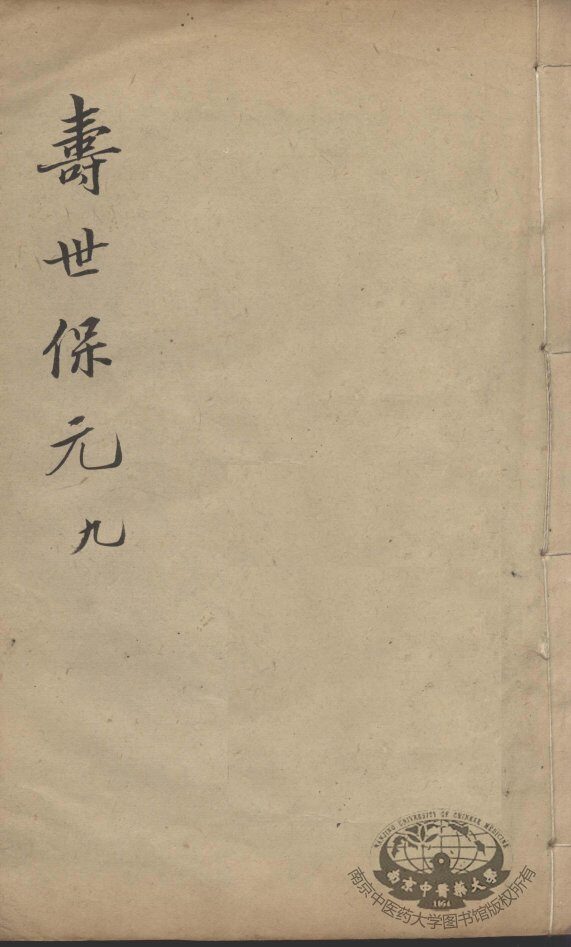 壽世保元
九
NANJING UNIVERSITY OF CHINESE MEDICINE
南京中醫藥大學
1954
南京中医药大学图书馆版权所有